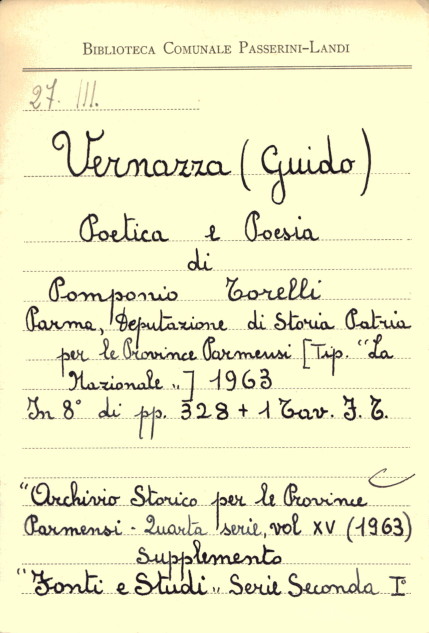 BIBLIOTECA COMUNALE PASSERINI-LANDI
27. III.
Vernazza (Guido)
Poetica e Poesia
di
Pomponio Torelli
Parma, Deputazione di Storia Patria
per le Province Parmensi [Tip. "La
Nazionale„] 1963
In 8° di pp. 328 + 1 Tav. F. T.
"Archivio Storico per le Province
Parmensi - Quarta serie, vol XV (1963)
Supplemento
"Fonti e Studi„ Serie Seconda I°